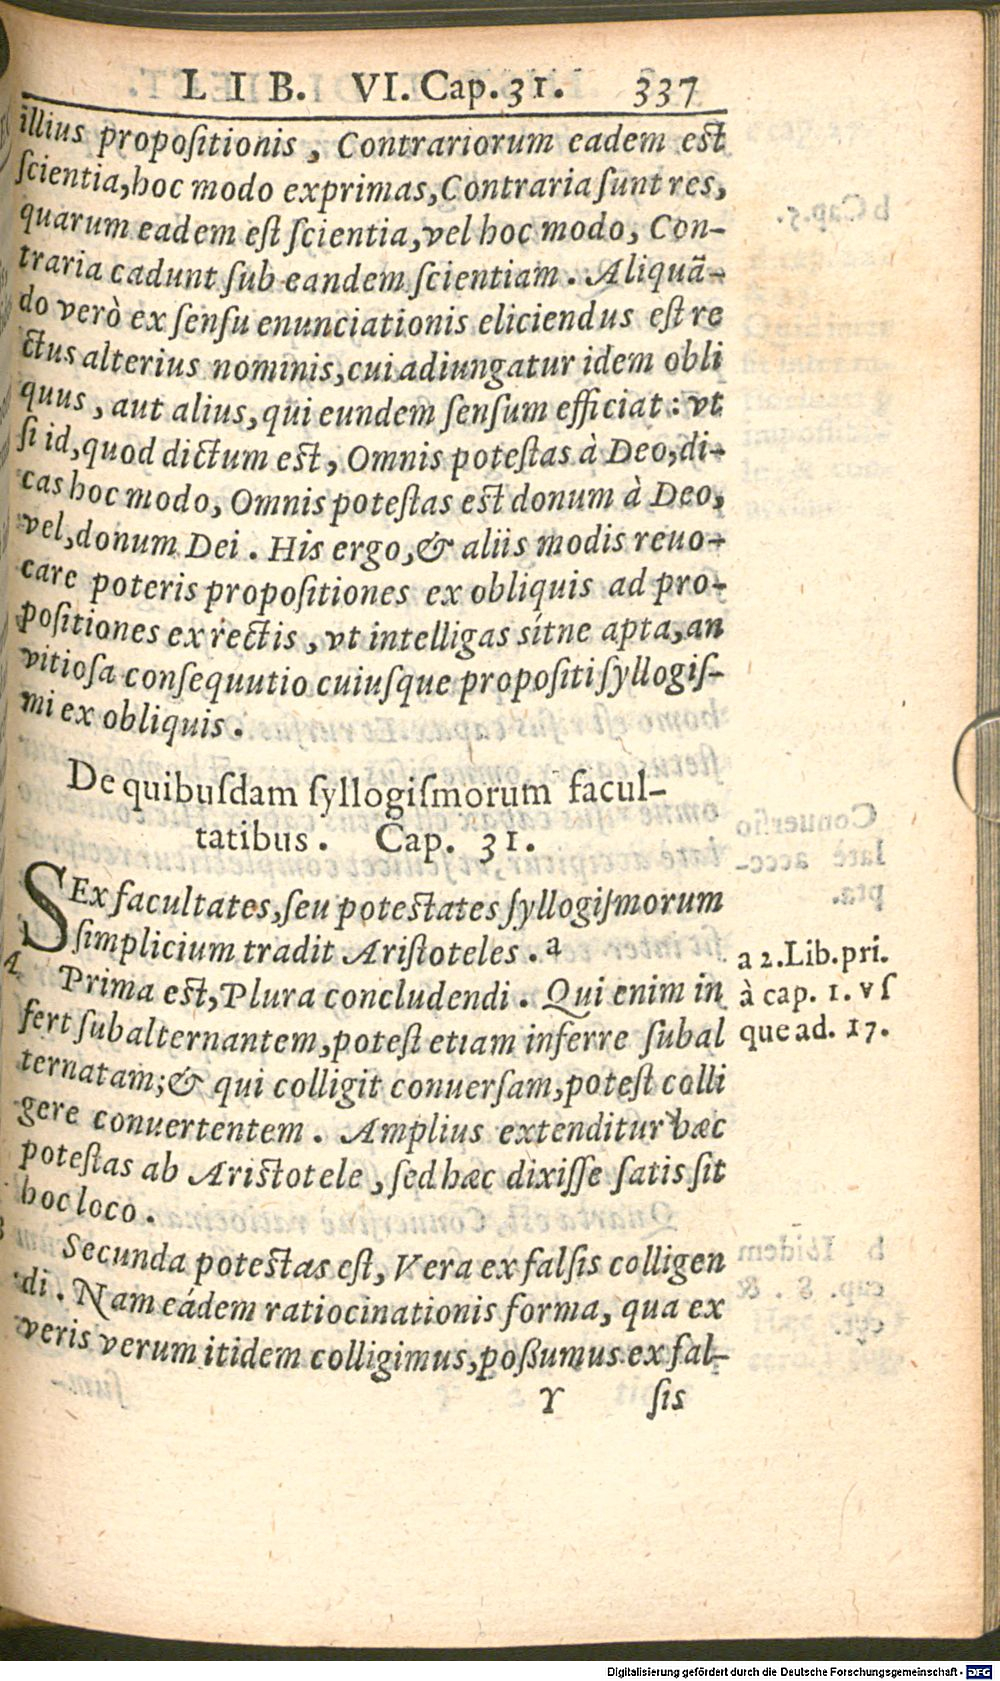 LIB. VI. Cap. 31. 337
illius propoſitionis, Contrariorum eadem eſt
ſcientia, hoc modo exprimas, Contraria ſunt res,
quarum eadem eſt ſcientia, vel hoc modo, Con-
traria cadunt ſub eandem ſcientiam. Aliquã-
do verò ex ſenſu enunciationis eliciendus eſt re
ctus alterius nominis, cui adiungatur idem obli
quus, aut alius, qui eundem ſenſum efficiat: vt
ſi id, quod dictum eſt, Omnis poteſtas à Deo, di-
cas hoc modo, Omnis poteſtas eſt donum à Deo,
vel, donum Dei. His ergo, & aliis modis reuo-
care poteris propoſitiones ex obliquis ad pro-
poſitiones ex rectis, vt intelligas sítne apta, an
vitioſa conſequutio cuiuſque propoſiti ſyllogiſ-
mi ex obliquis.
De quibuſdam ſyllogiſmorum facul-
tatibus. Cap. 31.
SEx facultates, ſeu poteſtates ſyllogiſmorum
ſimplicium tradit Ariſtoteles. a
Prima eſt, Plura concludendi. Qui enim in
fert ſubalternantem, poteſt etiam inferre ſubal
ternatam; & qui colligit conuerſam, poteſt colli
gere conuertentem. Amplius extenditur hæc
poteſtas ab Ariſtotele, ſed hæc dixiſſe ſatis ſit
hoc loco.
Secunda poteſtas eſt, Vera ex falſis colligen
di. Nam eádem ratiocinationis forma, qua ex
veris verum itidem colligimus, poßumus ex fal-
Y ſis
a 2. Lib. pri.
à cap. 1. vſ
que ad. 17.
Digitalisierung gefördert durch die Deutsche Forschungsgemeinschaft - DFG